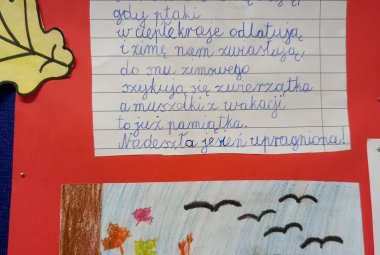 gdy ptaki
w ciepłe kraje odlatują
i zimę nam zwiastują,
do snu zimowego
szykują się zwierzątka
a muszelki z wakacji
to już pamiątka.
Nadeszła jesień upragniona!